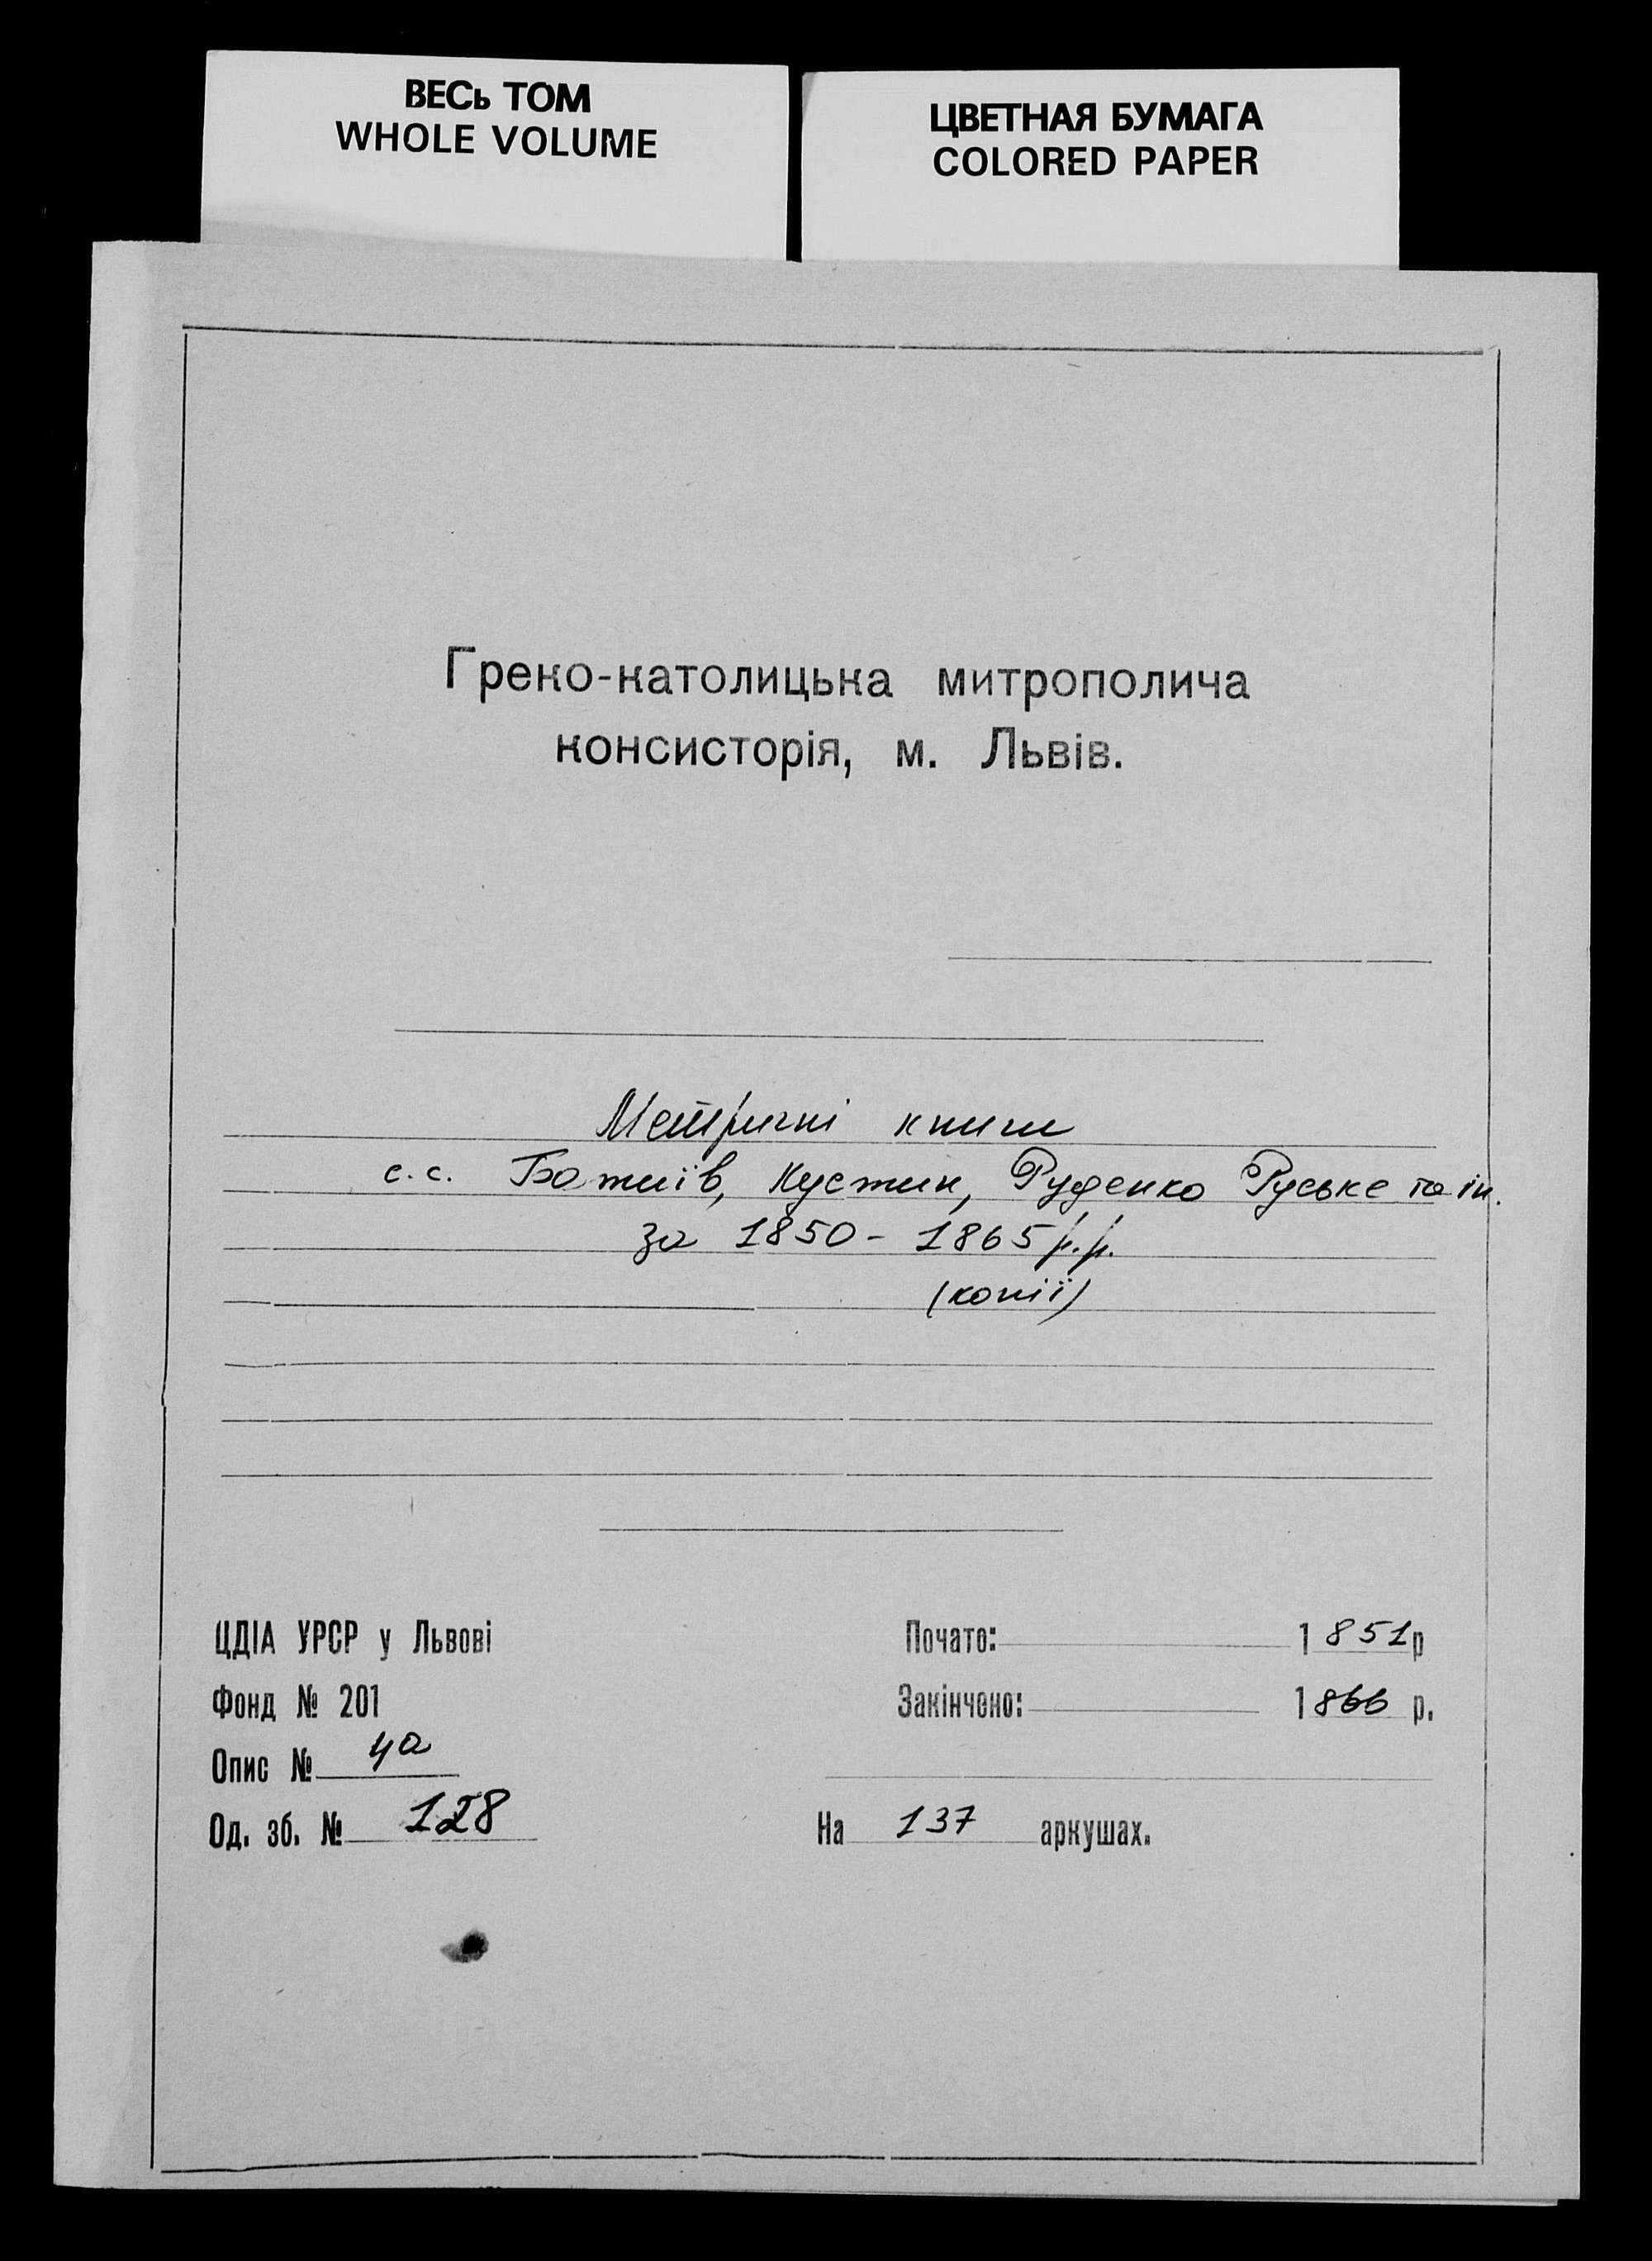 ВЕСЬ ТОМ
WHOLE VOLUME
ЦВЕТНАЯ БУМАГА
COLORED PAPER
Греко-католицька митрополича
консисторія, м. Львів.
Метричні книги
с.с. Батиїв, Кустин, Руденко Руське та ін.
за 1850 - 1865 р.р.
(копії)
ЦДІА УРСР у Львові
Фонд № 201
Опис № 4а
Од. зб. № 128
Почато: 1851 р
Закінчено: 1866 р.
На 137 аркушах.